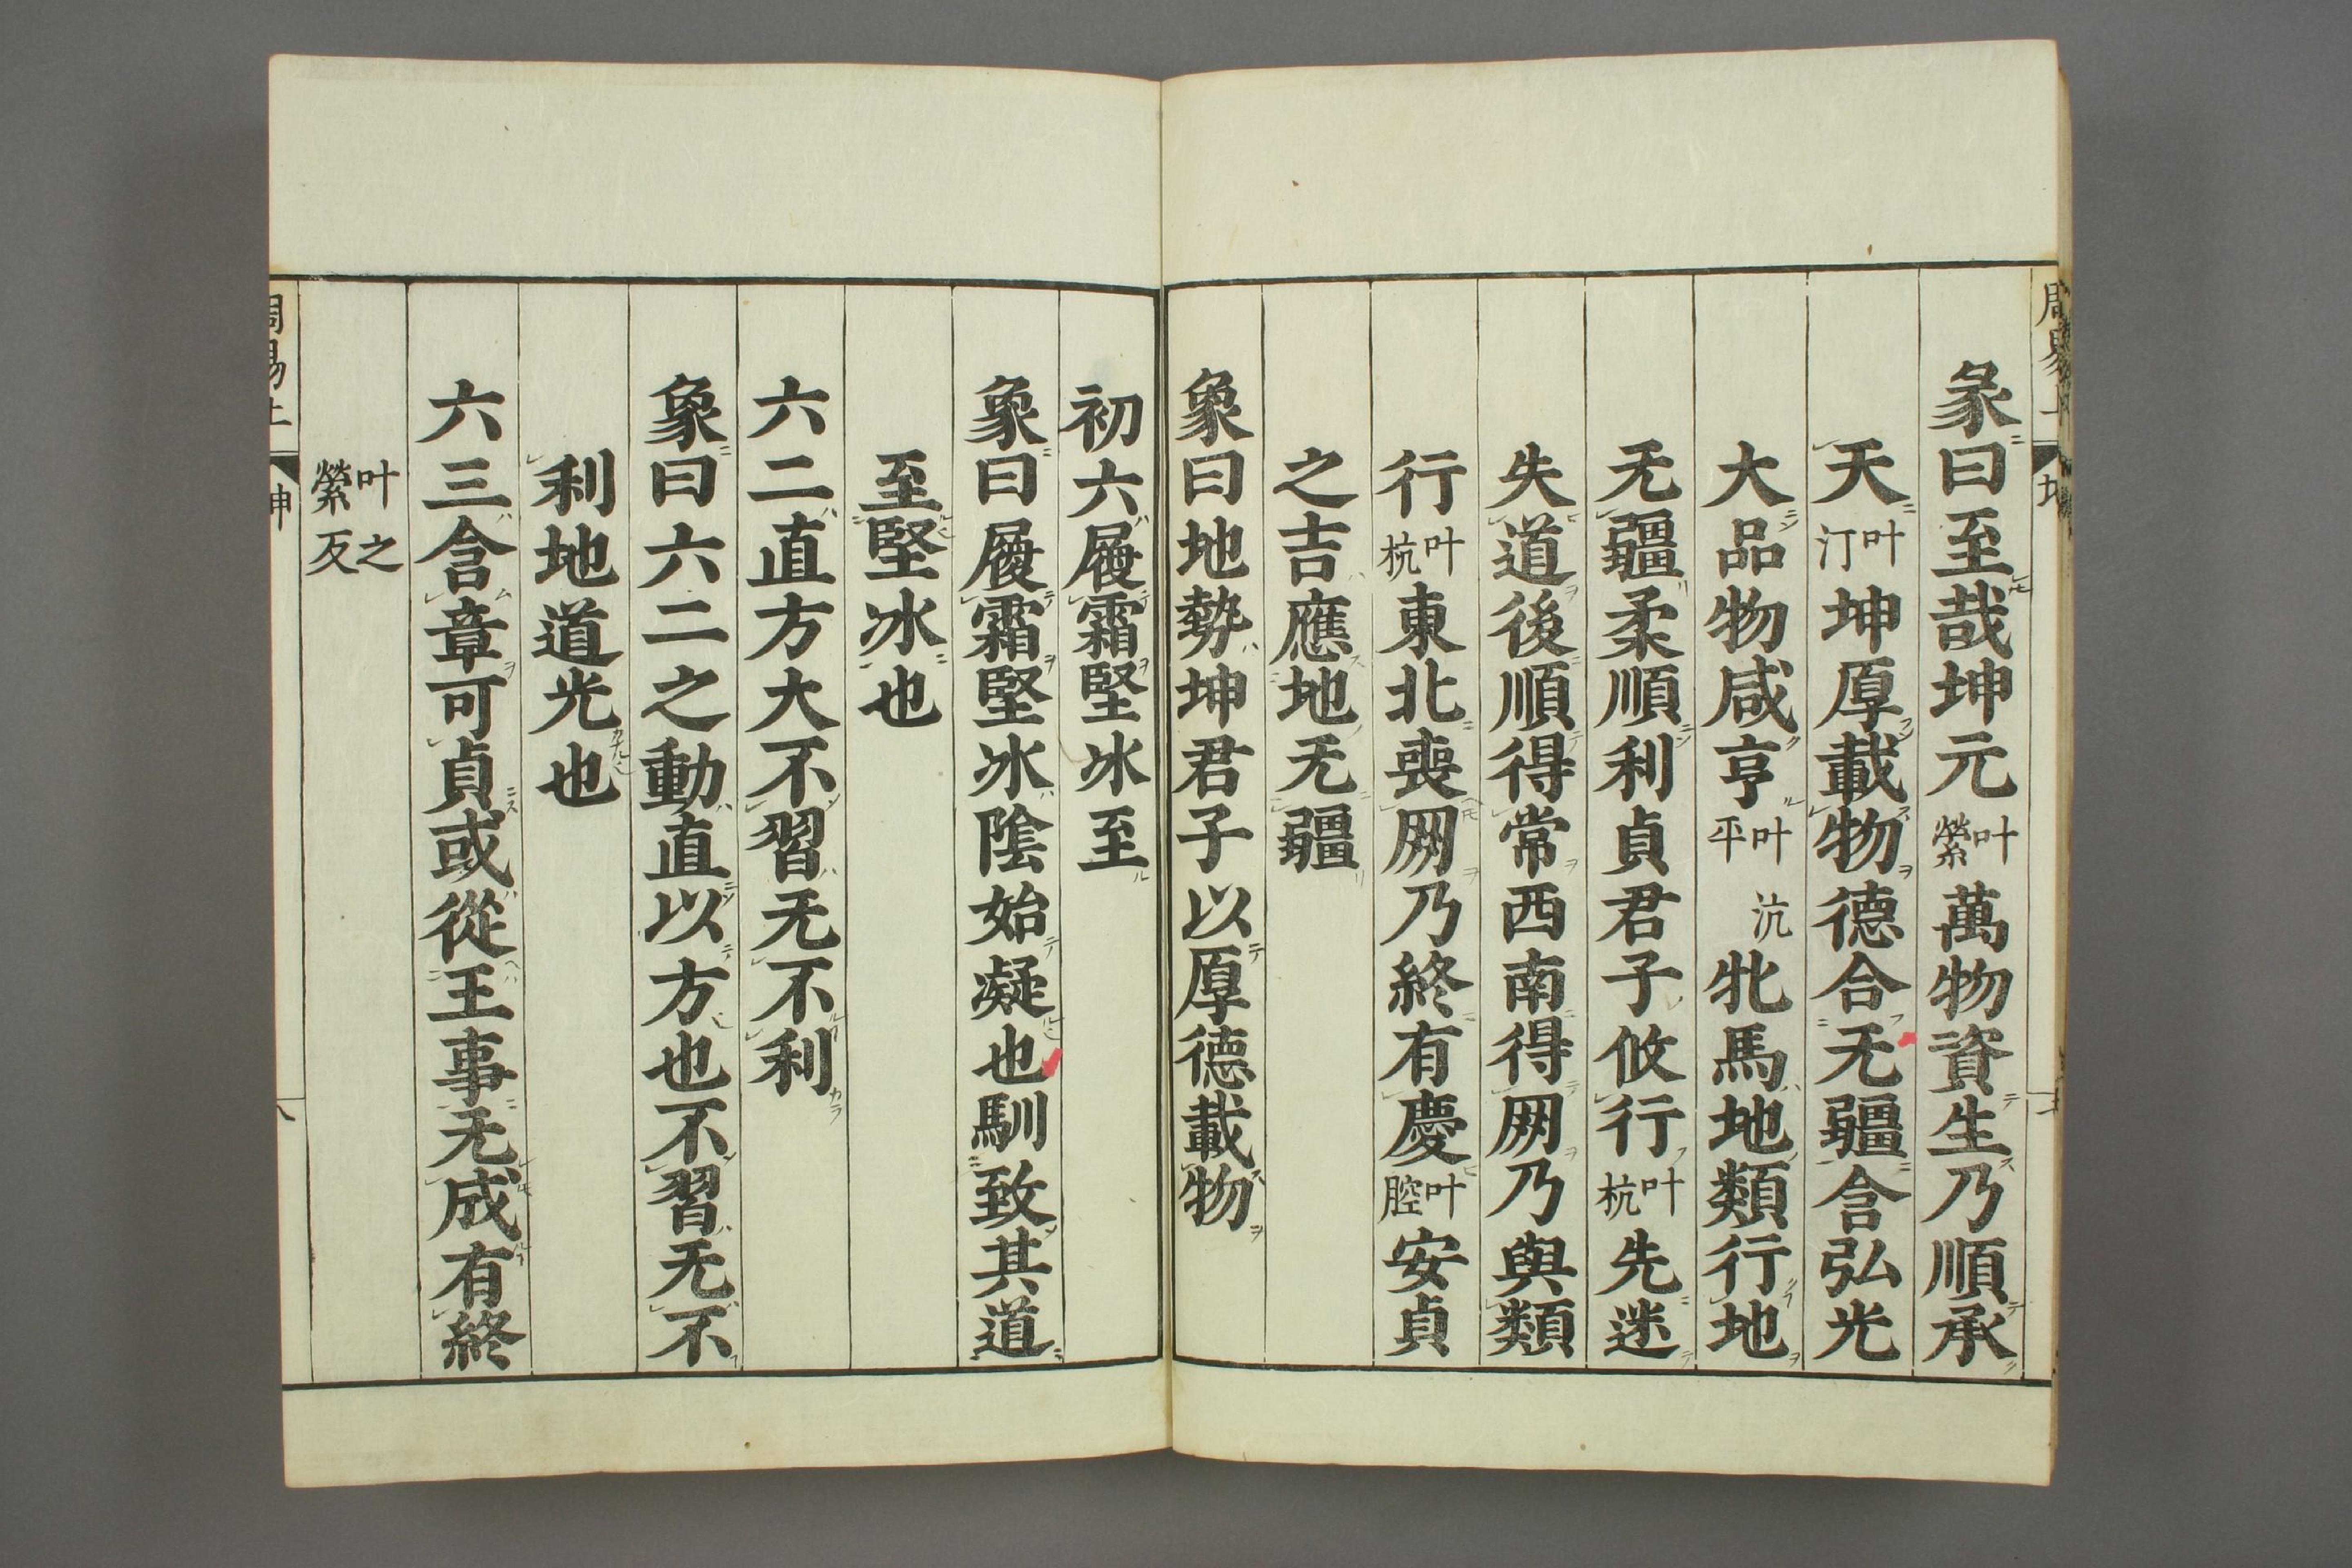 彖曰至哉坤元叶縈萬物資生乃順承
天叶汀坤厚載物德合无疆含弘光
大品物咸亨叶平沆牝馬地類行地
无疆柔順利貞君子攸行叶杭先迷
失道後順得常西南得朋乃與類
行叶杭東北喪朋乃終有慶叶腔安貞
之吉應地无疆
象曰地勢坤君子以厚德載物
初六履霜堅冰至
象曰履霜堅冰陰始凝也馴致其道
至堅冰也
六二直方大不習无不利
象曰六二之動直以方也不習无不
利地道光也
六三含章可貞或從王事无成有終
叶之縈反
周易上 坤 八